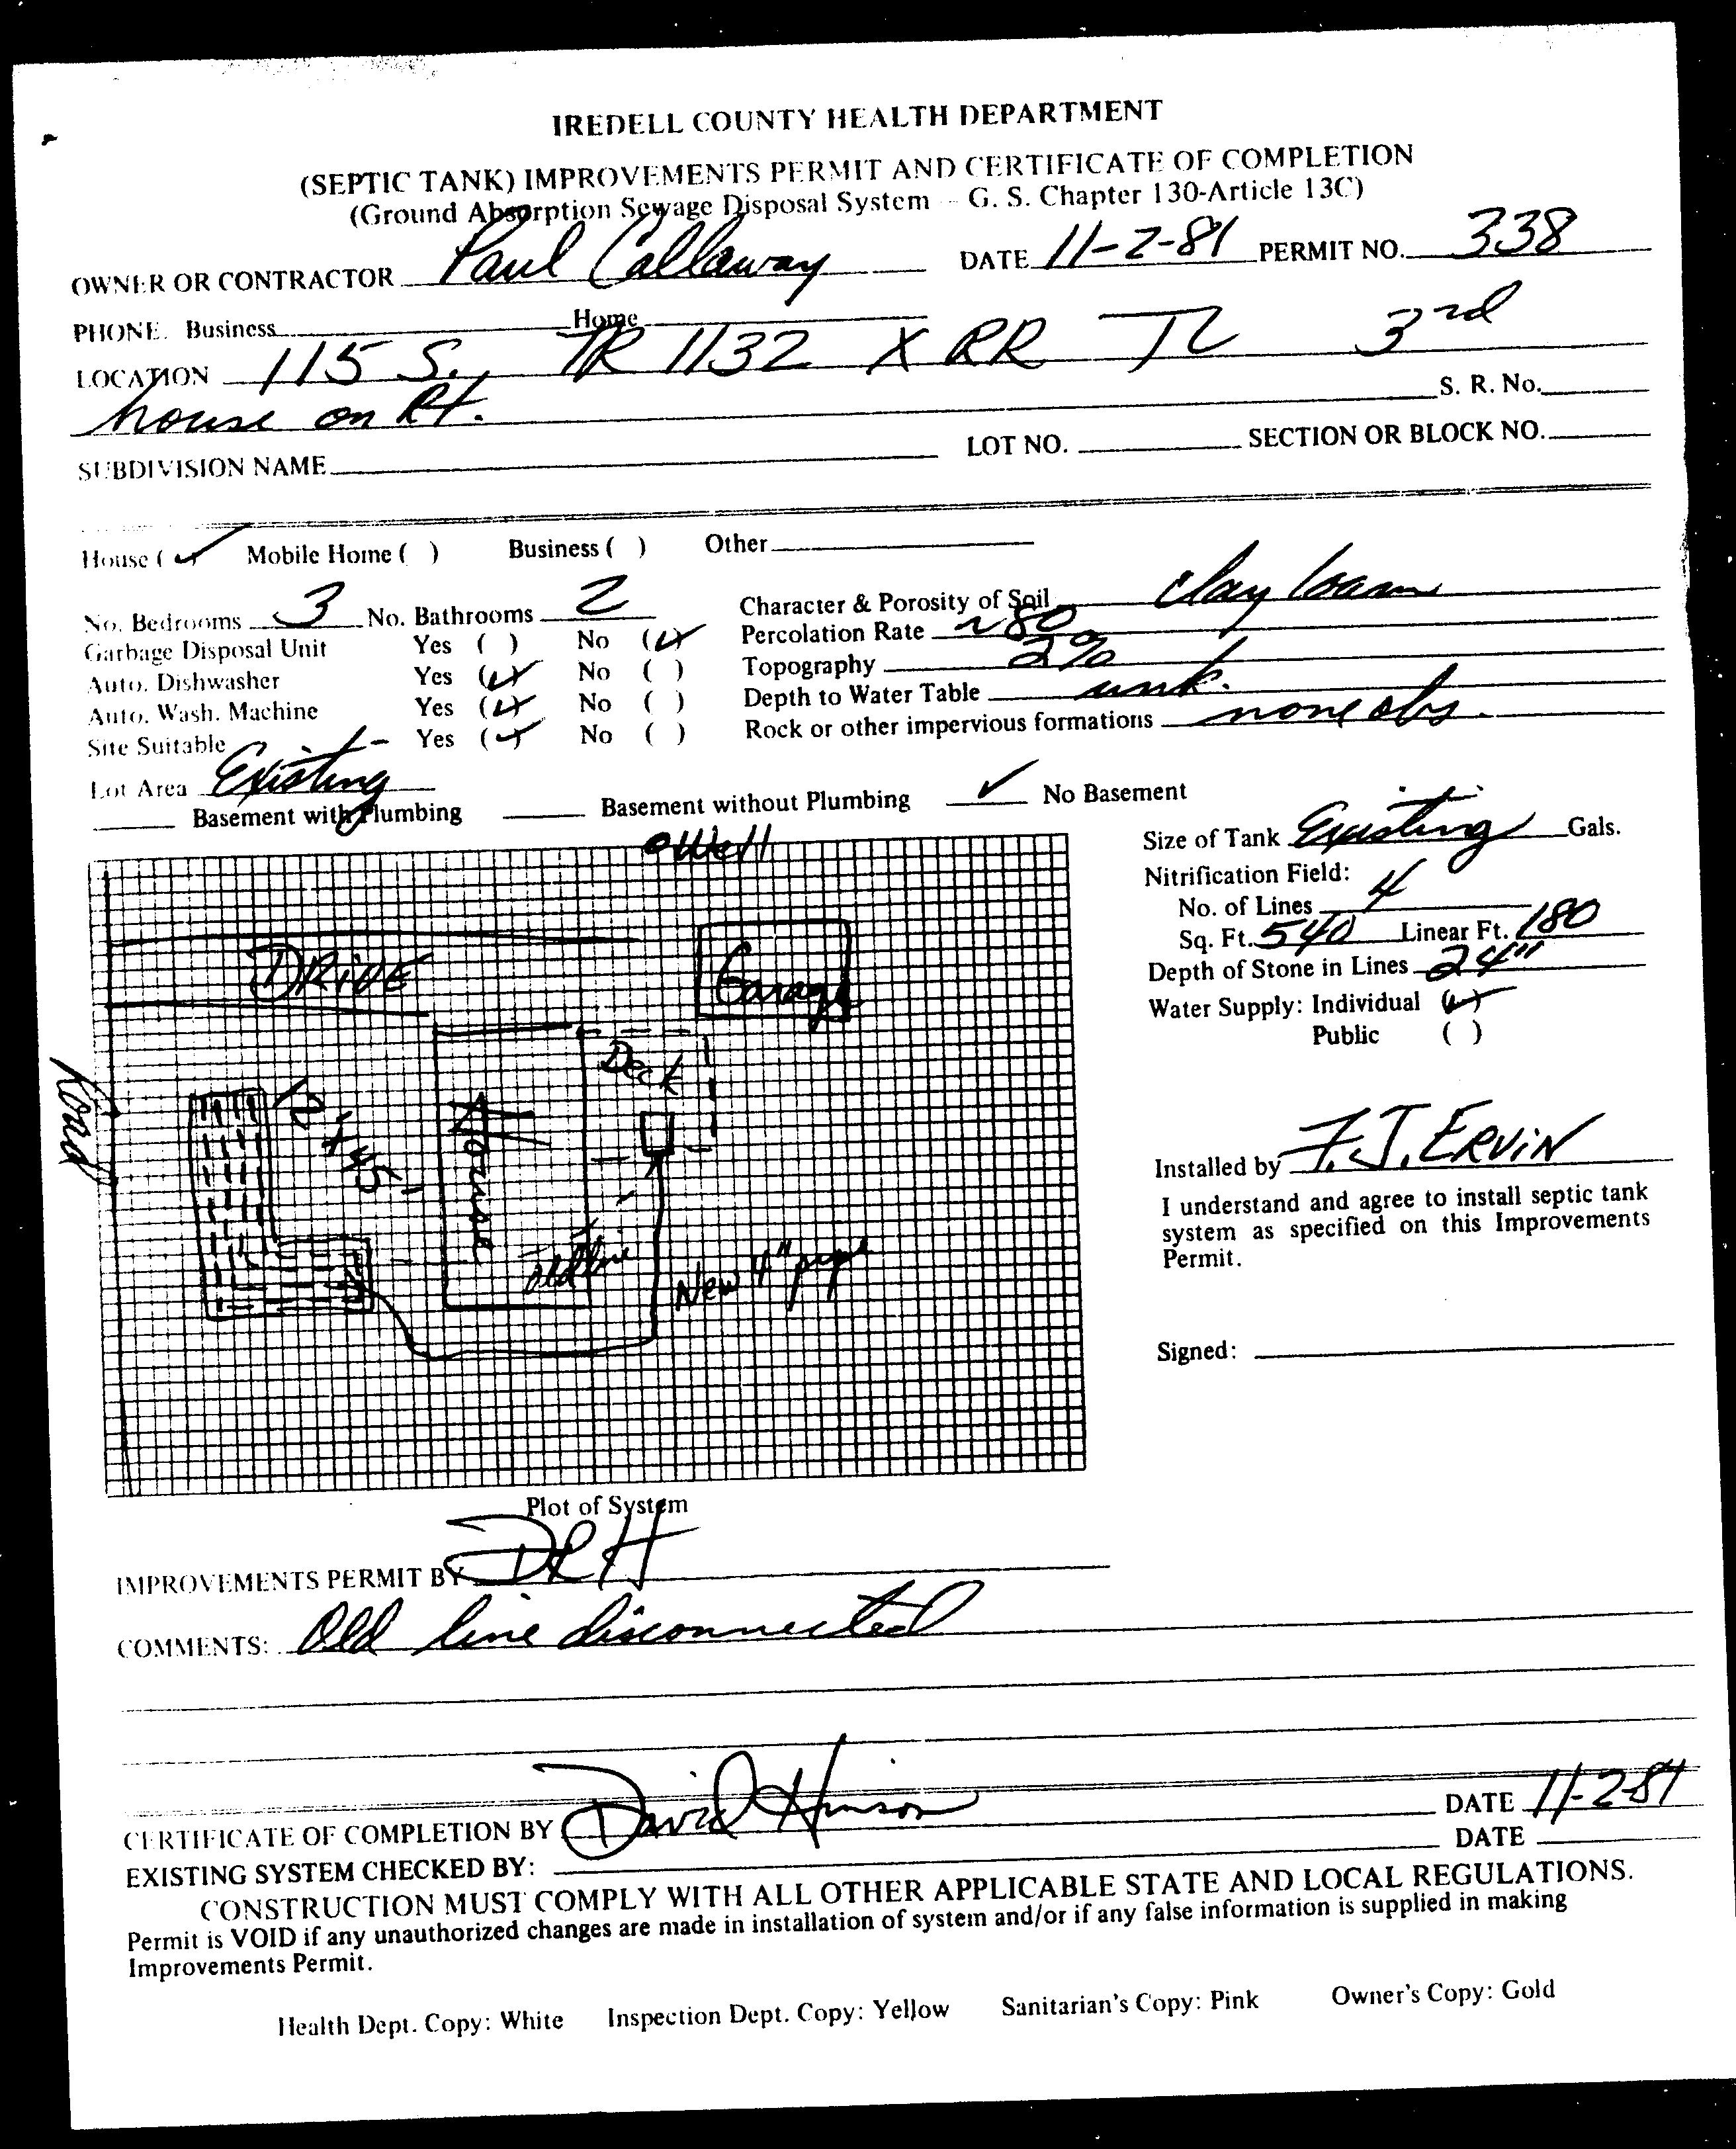 IREDELL COUNTY HEALTH DEPARTMENT
(SEPTIC TANK) IMPROVEMENTS PERMIT AND CERTIFICATE OF COMPLETION
(Ground Absorption Sewage Disposal System - G. S. Chapter 130-Article 13C)
OWNER OR CONTRACTOR Paul Callaway DATE 11-2-81 PERMIT NO. 338
PHONE. Business Home
LOCATION 115 S. TR 1132 X RR TL 3rd
house on Rt. S. R. No.
SUBDIVISION NAME LOT NO. SECTION OR BLOCK NO.
House (✓) Mobile Home ( ) Business ( ) Other
No. Bedrooms 3 No. Bathrooms 2 Character & Porosity of Soil clay loam
Garbage Disposal Unit Yes ( ) No (✓) Percolation Rate ~80
Auto. Dishwasher Yes (✓) No ( ) Topography 2%
Auto. Wash. Machine Yes (✓) No ( ) Depth to Water Table unk.
Site Suitable Yes (✓) No ( ) Rock or other impervious formations none obs.
Lot Area Existing
Basement with Plumbing Basement without Plumbing ✓ No Basement
Size of Tank Existing Gals.
Nitrification Field:
No. of Lines 4
Sq. Ft. 540 Linear Ft. 180
Depth of Stone in Lines 24"
Water Supply: Individual (✓)
Public ( )
Installed by F.J. ERVIN
I understand and agree to install septic tank
system as specified on this Improvements
Permit.
Signed:
oWell
DRIVE
Garage
Deck
Road
12' x 45'
House
old line
New 4" pipe
Plot of System
IMPROVEMENTS PERMIT BY DRH
COMMENTS: Old line disconnected
CERTIFICATE OF COMPLETION BY David Hinson DATE 11-2-81
EXISTING SYSTEM CHECKED BY: DATE
CONSTRUCTION MUST COMPLY WITH ALL OTHER APPLICABLE STATE AND LOCAL REGULATIONS.
Permit is VOID if any unauthorized changes are made in installation of system and/or if any false information is supplied in making
Improvements Permit.
Health Dept. Copy: White Inspection Dept. Copy: Yellow Sanitarian's Copy: Pink Owner's Copy: Gold